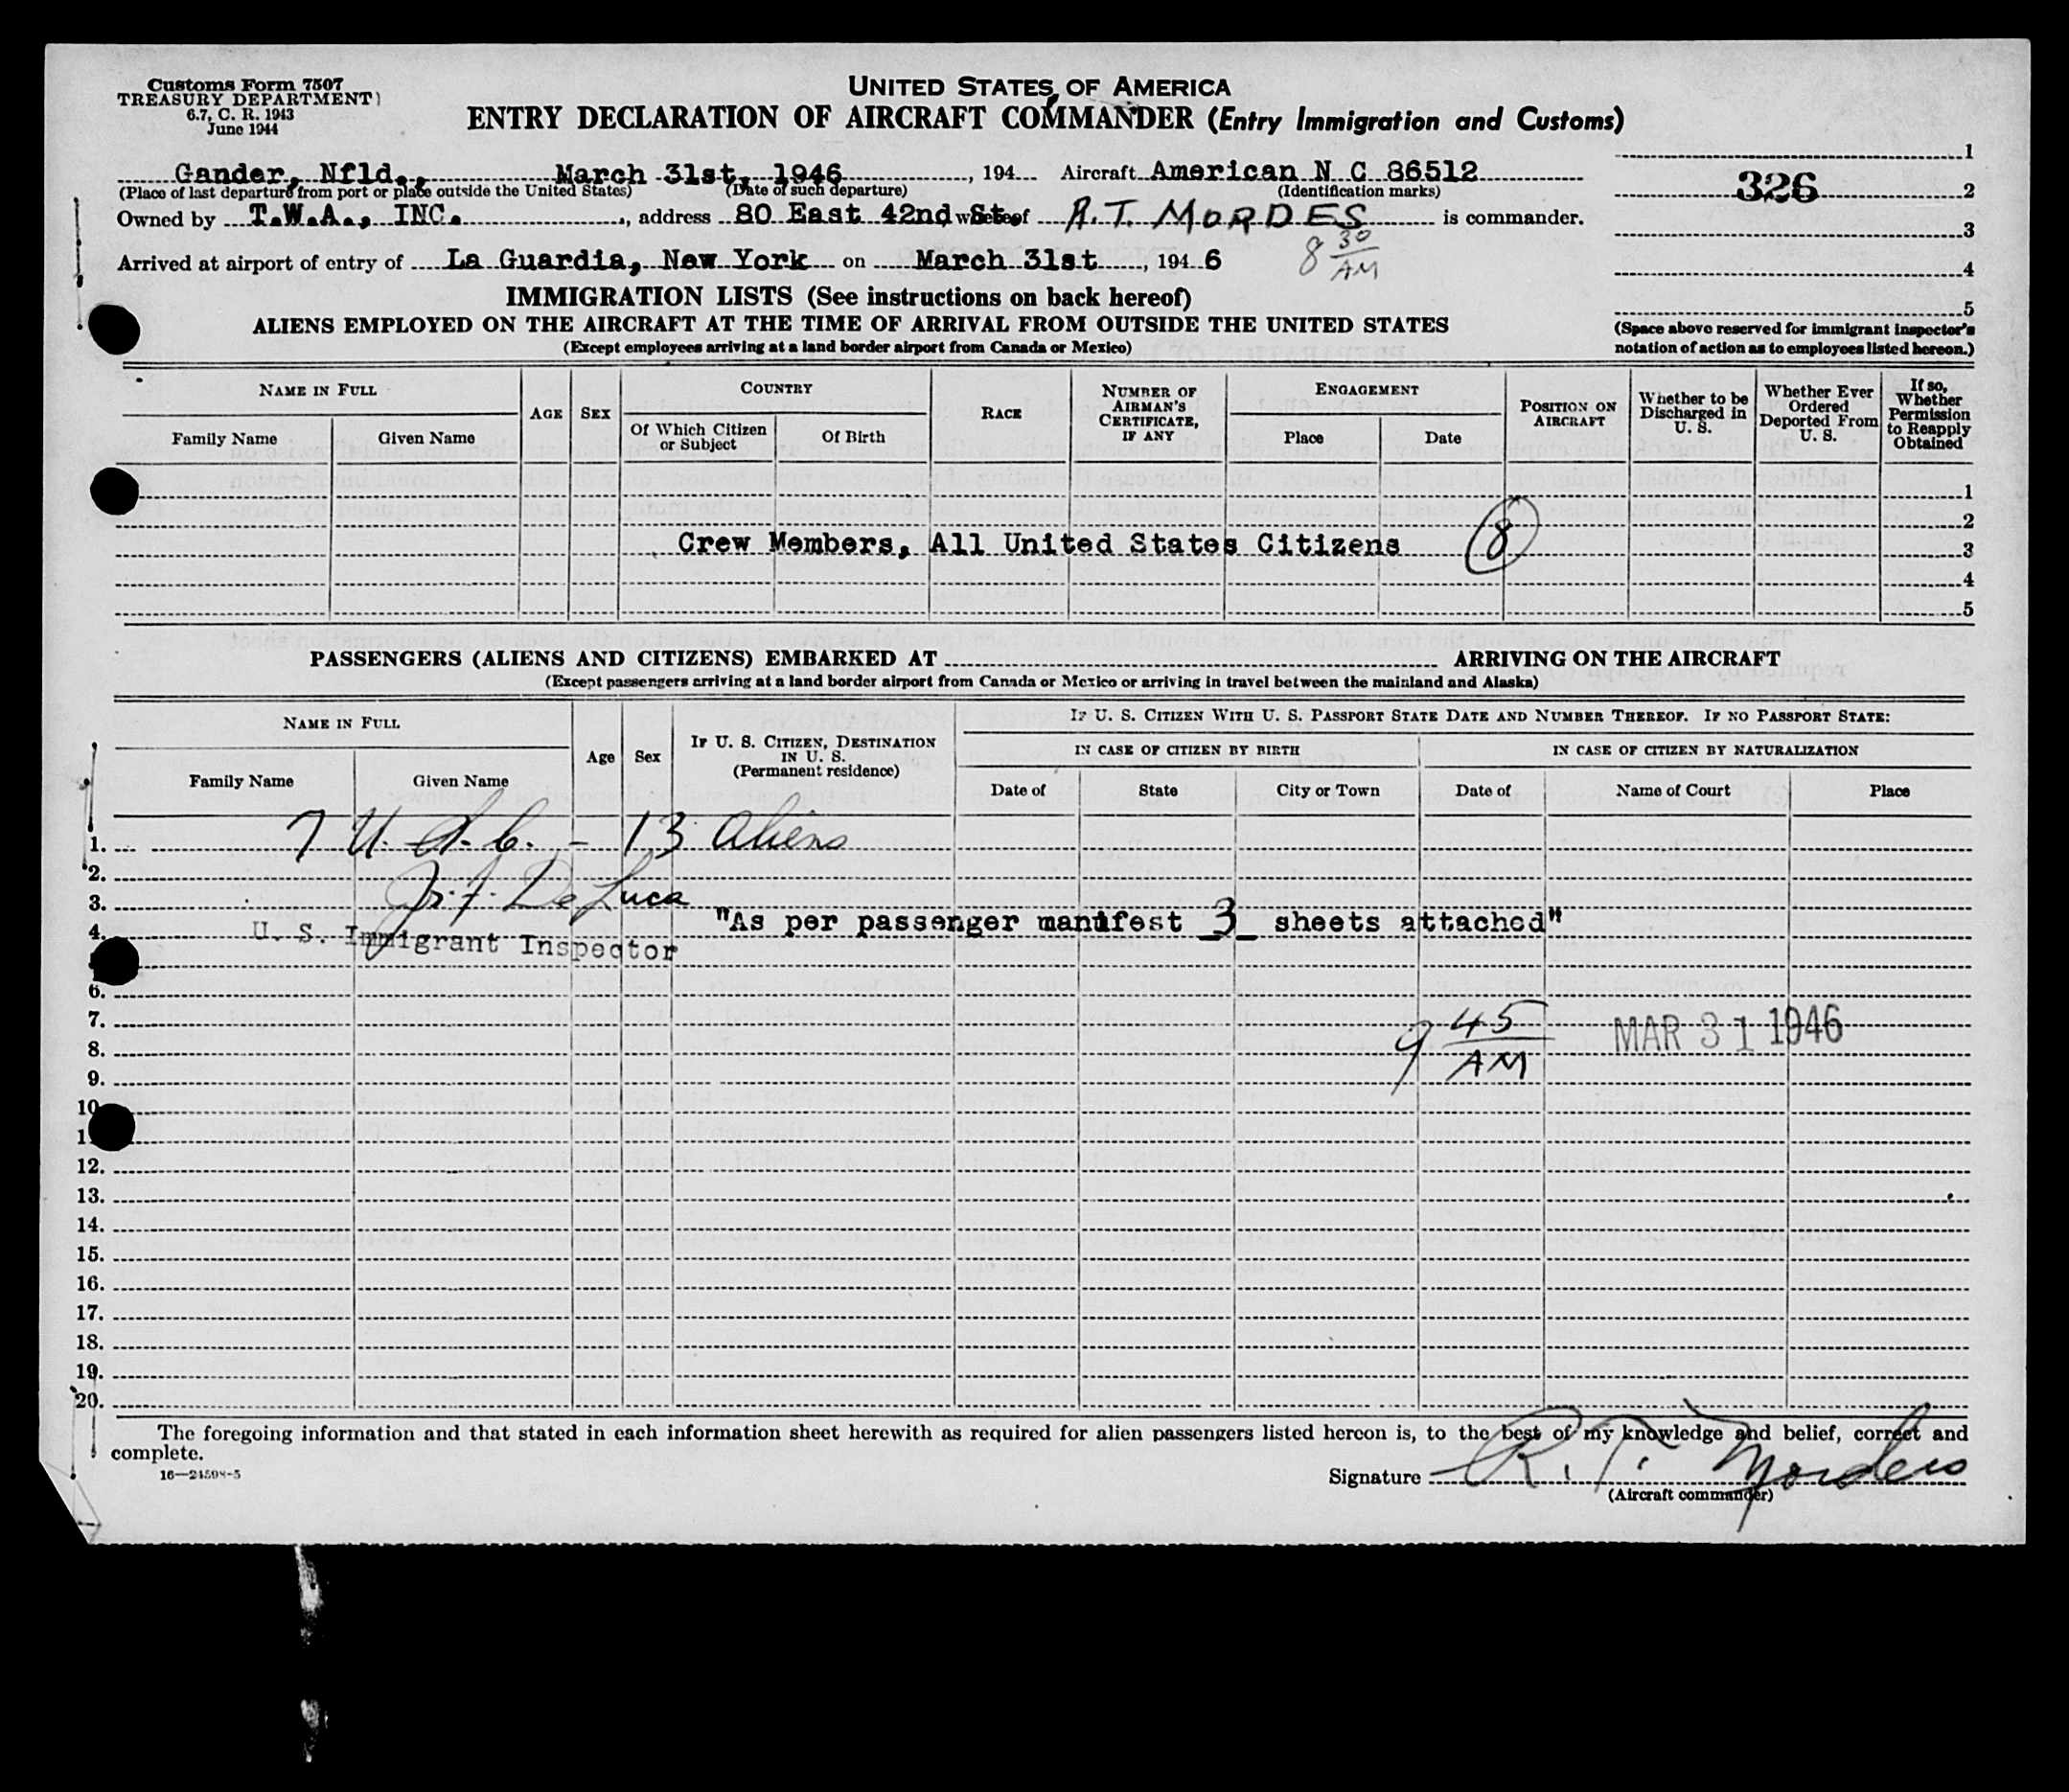 Customs Form 7507
TREASURY DEPARTMENT
6.7, C. R. 1943
June 1944
UNITED STATES OF AMERICA
ENTRY DECLARATION OF AIRCRAFT COMMANDER (Entry Immigration and Customs)
Gander, Nfld., March 31st, 1946, 194 Aircraft American N C 86512
(Place of last departure from port or place outside the United States) (Date of such departure) (Identification marks)
Owned by T.W.A., INC., address 80 East 42nd St. whereof R.T. MORDES is commander.
Arrived at airport of entry of La Guardia, New York on March 31st, 1946 8 30 AM
1
326 2
3
4
5
(Space above reserved for immigrant inspector's
notation of action as to employees listed hereon.)
IMMIGRATION LISTS (See instructions on back hereof)
ALIENS EMPLOYED ON THE AIRCRAFT AT THE TIME OF ARRIVAL FROM OUTSIDE THE UNITED STATES
(Except employees arriving at a land border airport from Canada or Mexico)
NAME IN FULL
Family Name
Given Name
AGE
SEX
COUNTRY
Of Which Citizen or Subject
Of Birth
RACE
NUMBER OF AIRMAN'S CERTIFICATE, IF ANY
ENGAGEMENT
Place
Date
POSITION ON AIRCRAFT
Whether to be Discharged in U. S.
Whether Ever Ordered Deported From U. S.
If so, Whether Permission to Reapply Obtained
1
2
Crew Members, All United States Citizens 8 3
4
5
PASSENGERS (ALIENS AND CITIZENS) EMBARKED AT ARRIVING ON THE AIRCRAFT
(Except passengers arriving at a land border airport from Canada or Mexico or arriving in travel between the mainland and Alaska)
NAME IN FULL
Family Name
Given Name
Age
Sex
IF U. S. CITIZEN, DESTINATION IN U. S.
(Permanent residence)
IF U. S. CITIZEN WITH U. S. PASSPORT STATE DATE AND NUMBER THEREOF. IF NO PASSPORT STATE:
IN CASE OF CITIZEN BY BIRTH
IN CASE OF CITIZEN BY NATURALIZATION
Date of
State
City or Town
Date of
Name of Court
Place
1. 7 U.S.C. - 13 Aliens
2.
3. De Luca
"As per passenger manifest 3 sheets attached"
4. U. S. Immigrant Inspector
6.
7. 9 45 AM MAR 31 1946
8.
9.
10
12.
13.
14.
15.
16.
17.
18.
19.
20.
The foregoing information and that stated in each information sheet herewith as required for alien passengers listed hereon is, to the best of my knowledge and belief, correct and
complete.
16—24598-5
Signature R. T. Mordes
(Aircraft commander)